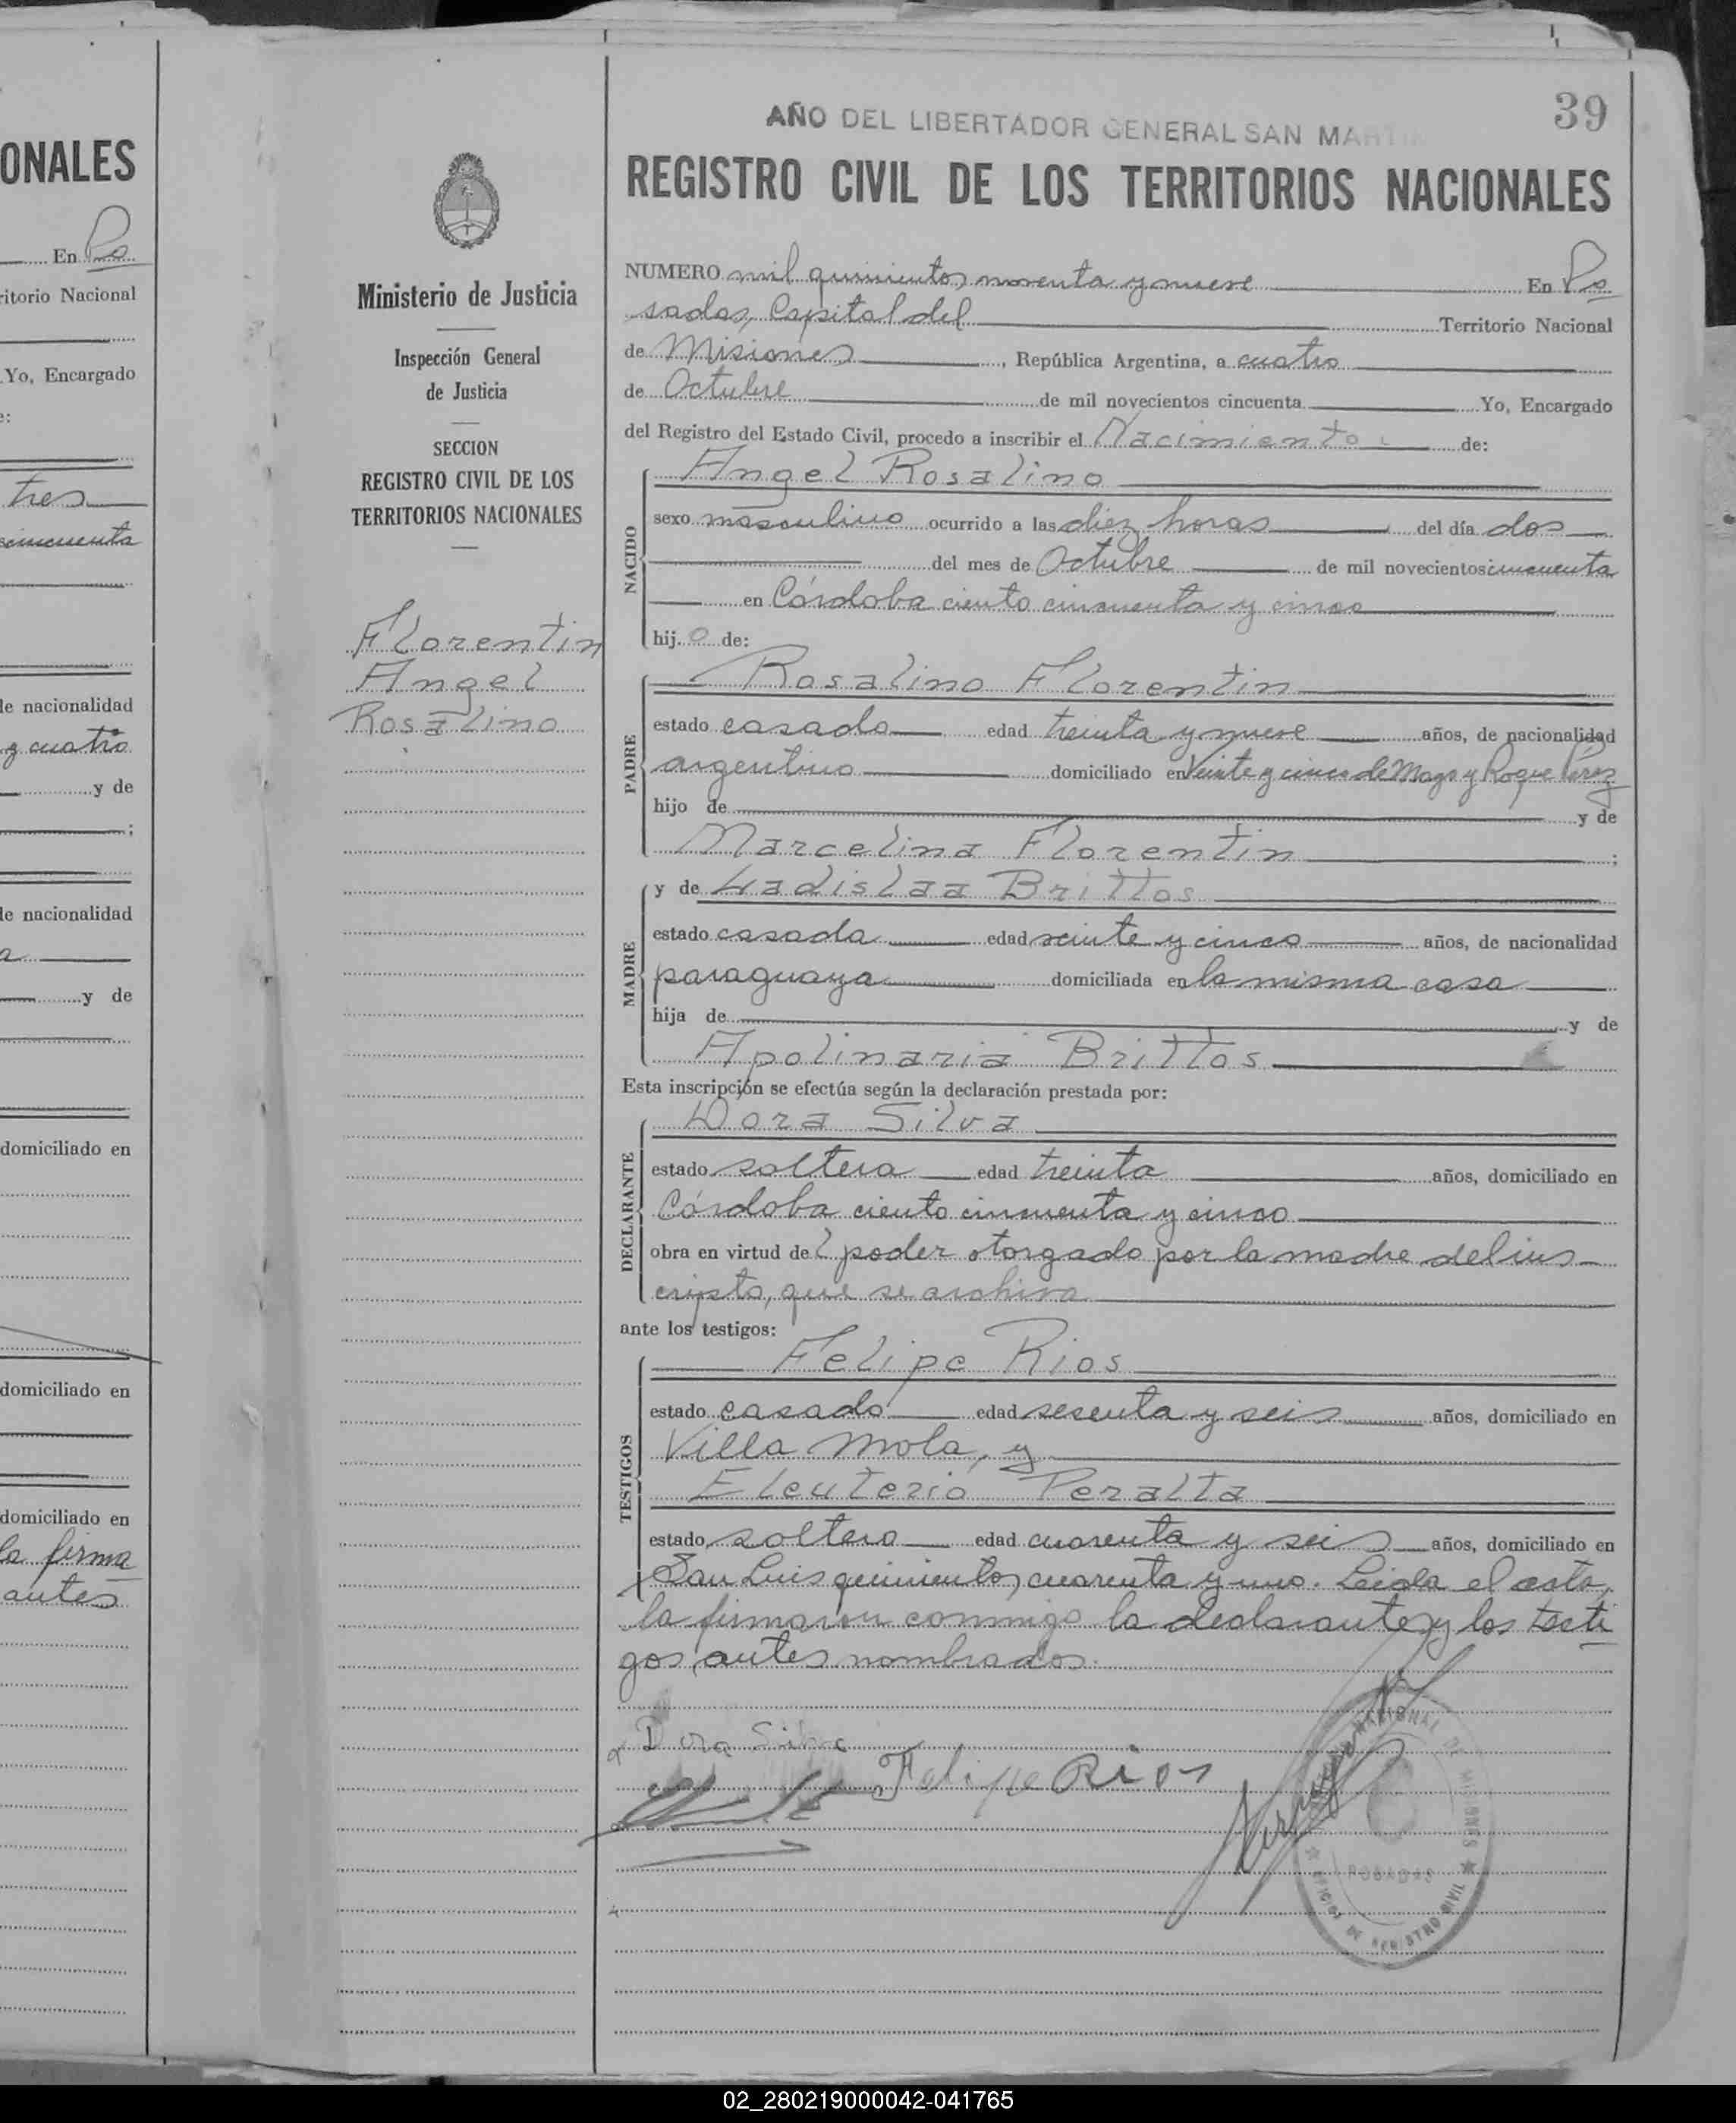 ONALES
En Po
ritorio Nacional
Yo, Encargado
e:
tres
cincuenta
de nacionalidad
y cuatro
y de
;
de nacionalidad
a
y de
domiciliado en
domiciliado en
domiciliado en
la firma
antes
Ministerio de Justicia
Inspección General
de Justicia
SECCION
REGISTRO CIVIL DE LOS
TERRITORIOS NACIONALES
Florentin
Angel
Rosalino
AÑO DEL LIBERTADOR GENERAL SAN MARTIN
39
REGISTRO CIVIL DE LOS TERRITORIOS NACIONALES
NUMERO mil quinientos noventa y nueve En Po
sadas, Capital del Territorio Nacional
de Misiones, República Argentina, a cuatro
de Octubre de mil novecientos cincuenta Yo, Encargado
del Registro del Estado Civil, procedo a inscribir el Nacimiento de:
NACIDO
Angel Rosalino
sexo masculino ocurrido a las diez horas del día dos
del mes de Octubre de mil novecientos cincuenta
en Córdoba ciento cincuenta y cinco
hijo de:
PADRE
Rosalino Florentin
estado casado edad treinta y nueve años, de nacionalidad
argentino domiciliado en Veinte y cinco de Mayo y Roque Pérez
hijo de y de
Marcelina Florentin ;
MADRE
y de Ladislaa Brittos
estado casada edad veinte y cinco años, de nacionalidad
paraguaya domiciliada en la misma casa
hija de y de
Apolinaria Brittos
Esta inscripción se efectúa según la declaración prestada por:
DECLARANTE
Dora Silva
estado soltera edad treinta años, domiciliado en
Córdoba ciento cincuenta y cinco
obra en virtud del poder otorgado por la madre del ins-
cripto, que se archiva
ante los testigos:
TESTIGOS
Felipe Rios
estado casado edad sesenta y seis años, domiciliado en
Villa Mola, y
Eleuterio Peralta
estado soltero edad cuarenta y seis años, domiciliado en
San Luis quinientos cuarenta y uno. Leida el acta,
la firmaron conmigo la declarante y los testi
gos antes nombrados.
Dora Silva
Felipe Rios
NACIONAL DE MISIONES
POSADAS
OFICINA DE REGISTRO CIVIL
02_280219000042-041765